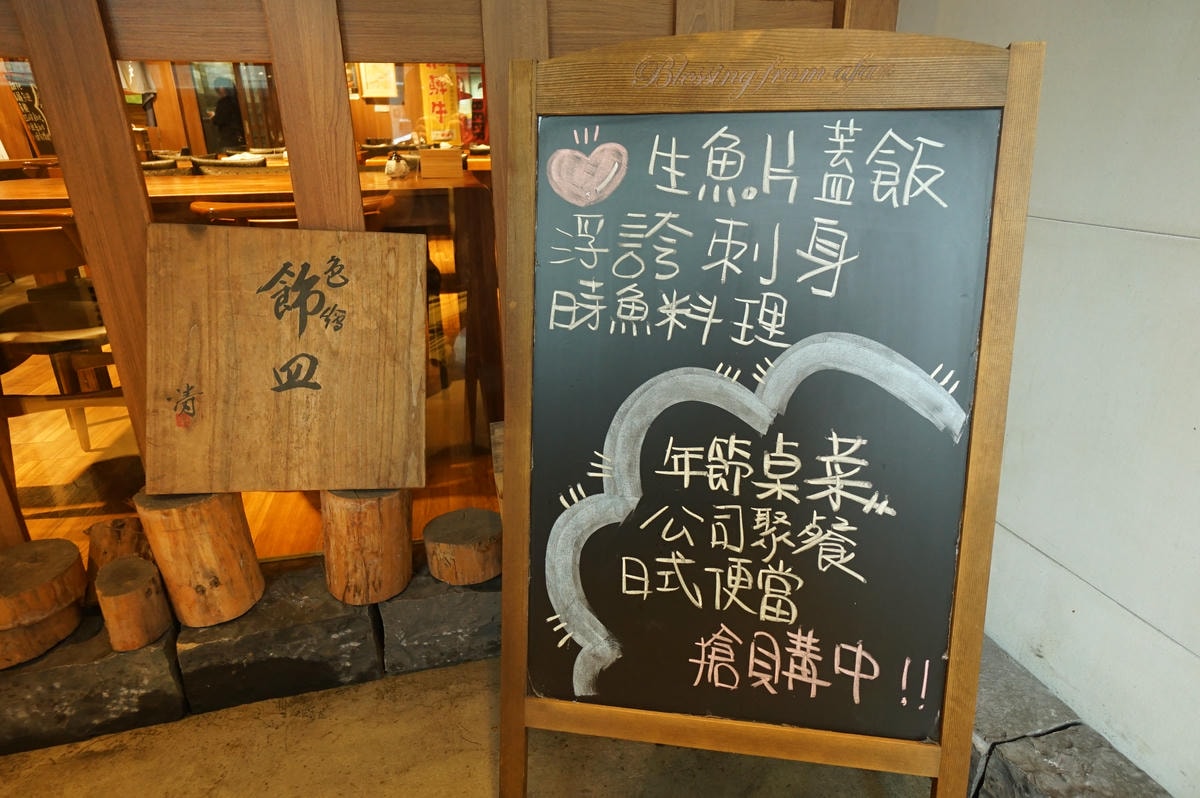 Blessing from afar
生魚片蓋飯
浮誇刺身
時魚料理
年節桌菜
公司聚餐
日式便當
搶買購中!!
色繪
飾皿
清
牛